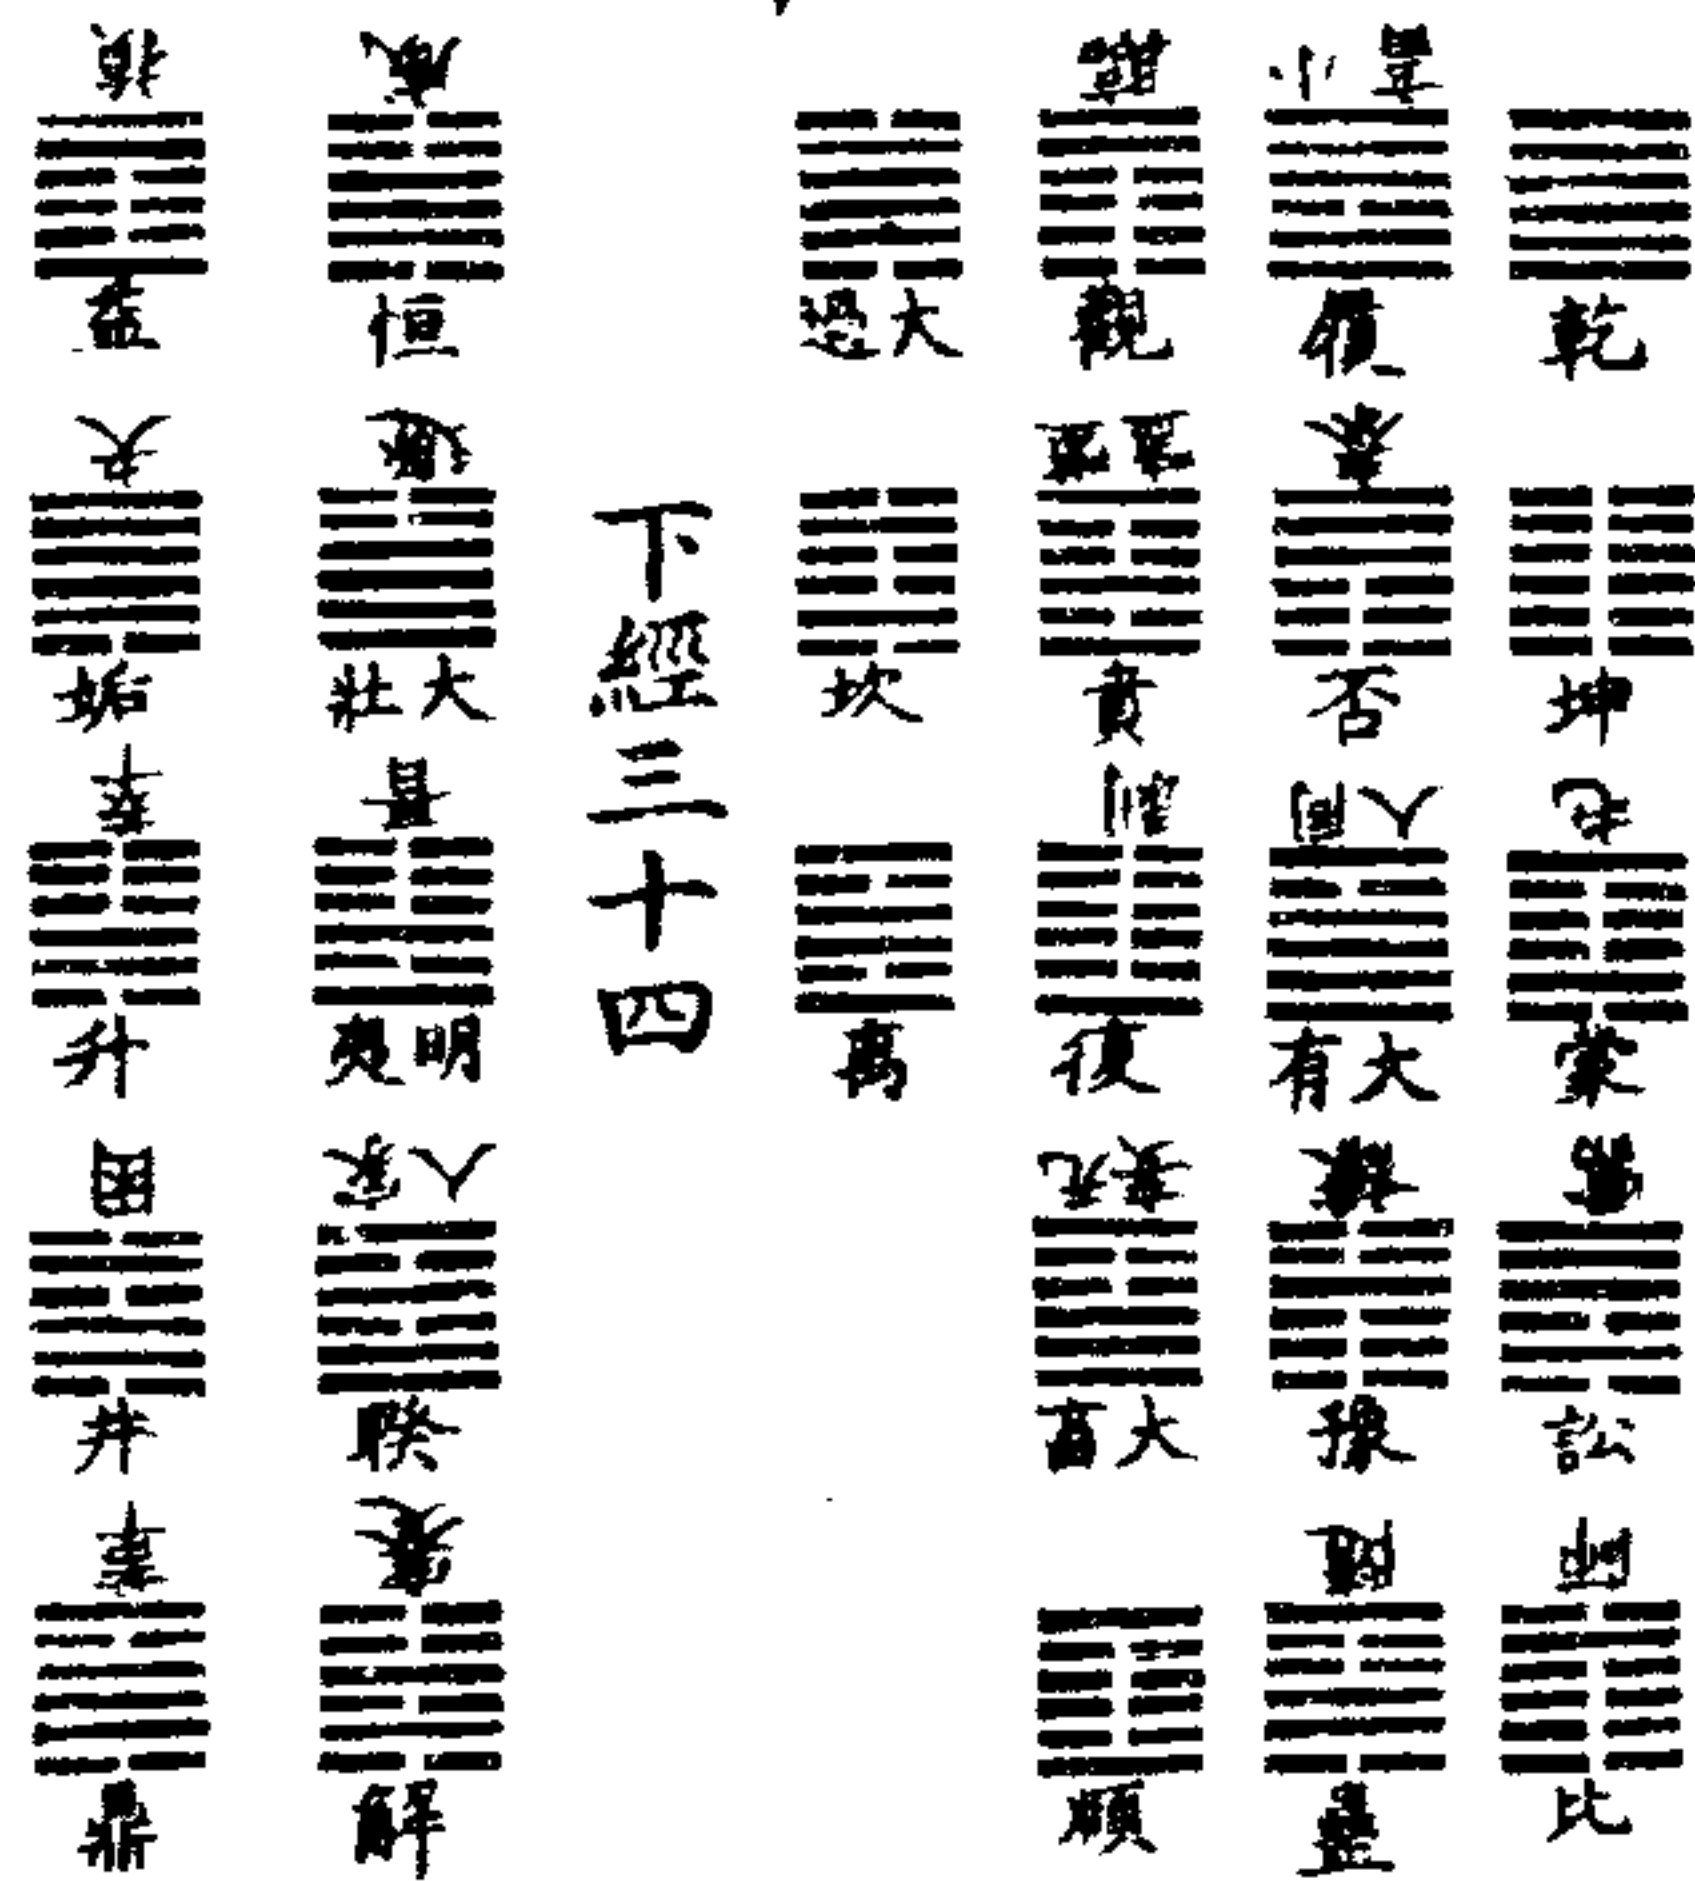 乾
坤
屯
蒙
需
訟
師
比
小畜
履
泰
否
同人
大有
謙
豫
隨
蠱
臨
觀
噬嗑
賁
剝
復
无妄
大畜
頤
大過
坎
离
下經三十四
咸
恒
遯
大壯
晉
明夷
家人
睽
蹇
解
損
益
夬
姤
萃
升
困
井
革
鼎